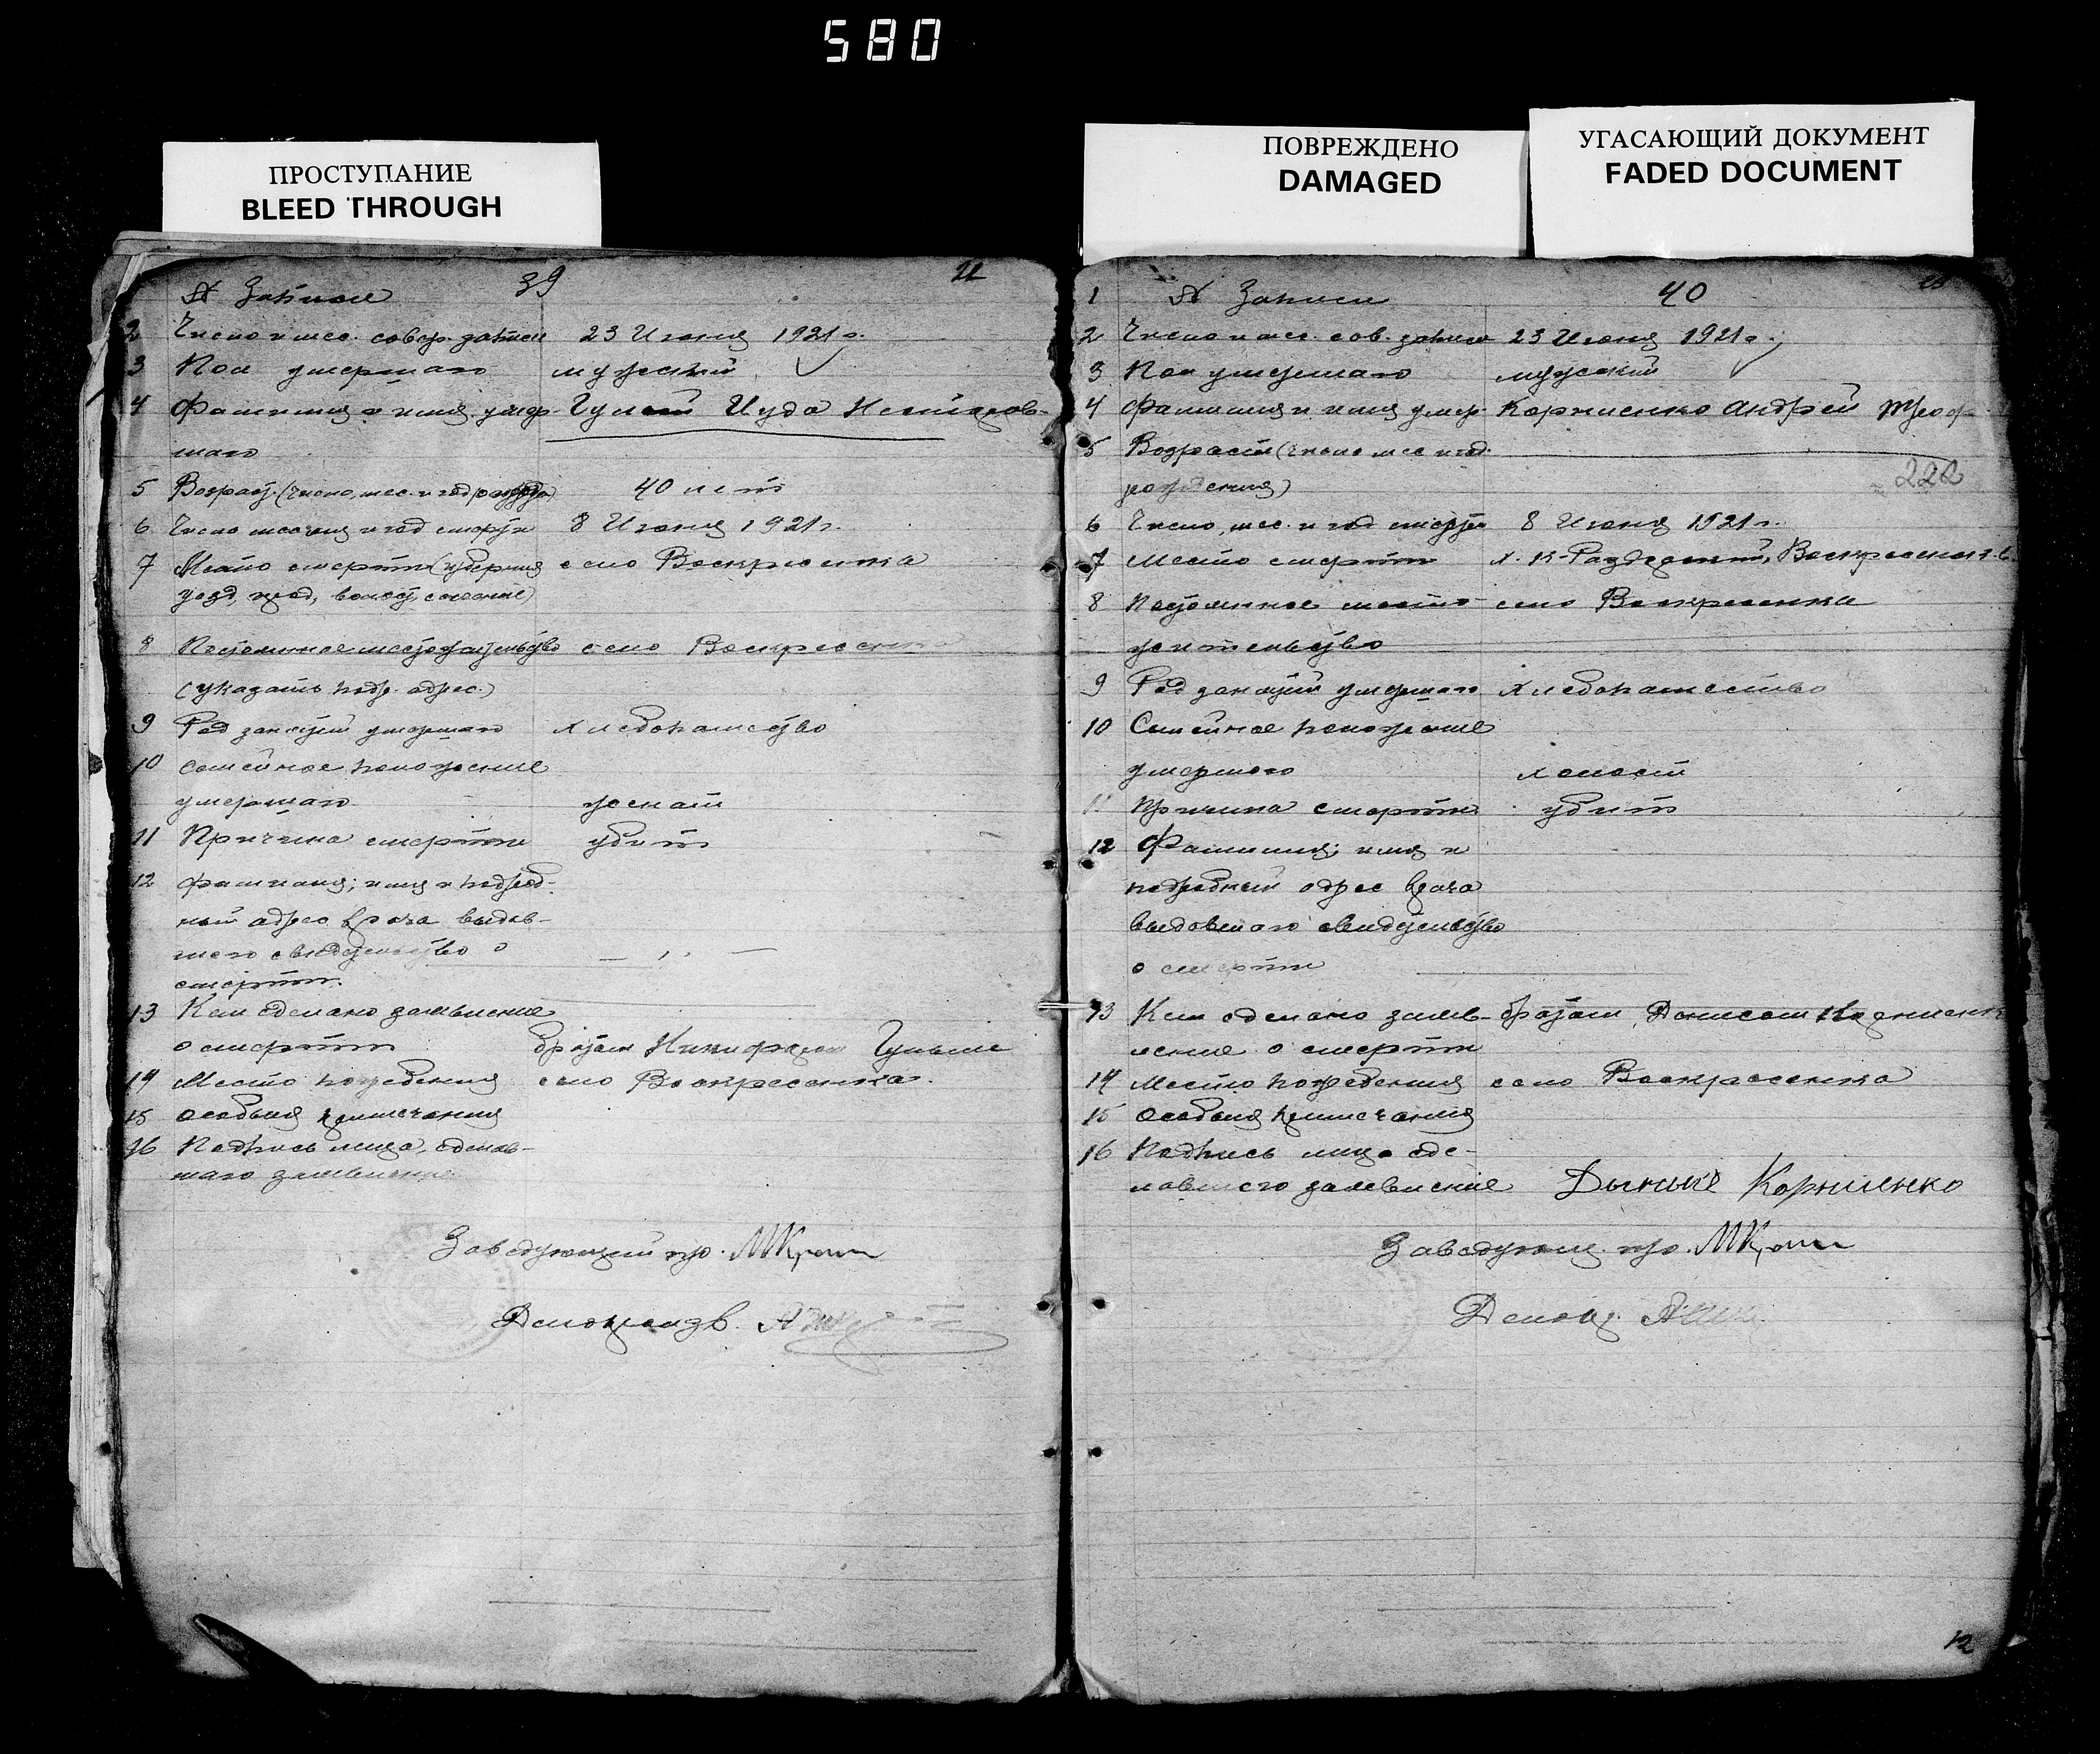 580
ПРОСТУПАНИЕ
BLEED THROUGH
ПОВРЕЖДЕНО
DAMAGED
УГАСАЮЩИЙ ДОКУМЕНТ
FADED DOCUMENT
№ Записи 39
2 Число и мес. совер. записи 23 Июня 1921 г.
3 Пол умершаго мужской
4 Фамилия и имя умер- Иуда
шаго
5 Возраст (число, мес. и год рожд) 40 лет
6 Число месяца и год смерти 8 Июня 1921 г.
7 Место смерти (губерния село Воскресенка
уезд, город, волость, селение)
8 Постоянное местожительство село Воскресенка
(указать подр. адрес.)
9 Род занятий умершаго хлебопашество
10 Семейное положение
умершаго женат
11 Причина смерти убит
12 Фамилия; имя и подроб-
ный адрес врача выдав-
шего свидетельство о
смерти.
13 Кем сделано заявление
о смерти братом
14 Место погребения село Воскресенка.
15 Особыя примечания
16 Подпись лица, сделав-
шаго заявление
Заведующий
Делопроизв.
1 № Записи 40
2 Число и мес. сов. записи 23 Июня 1921 г.
3 Пол умершаго мужской
4 Фамилия и имя умер. Корниенко Андрей
5 Возраст (число мес. и год.
рождения)
222
6 Число, мес. и год смерти 8 Июня 1921 г.
7 Место смерти
8 Постоянное место- село Воскресенка
жительство
9 Род занятий умершаго хлебопашество
10 Семейное положение
умершого холост
11 Причина смерти убит
12 Фамилия; имя и
подробный адрес врача
выдавшаго свидетельство
о смерти
13 Кем сделано заяв- братом, Денисом Корниенк
ление о смерти
14 Место погребения село Воскресенка
15 Особыя примечания
16 Подпись лица сде-
лавшего заявление Корниенко
Заведующ.
Делопр.
12